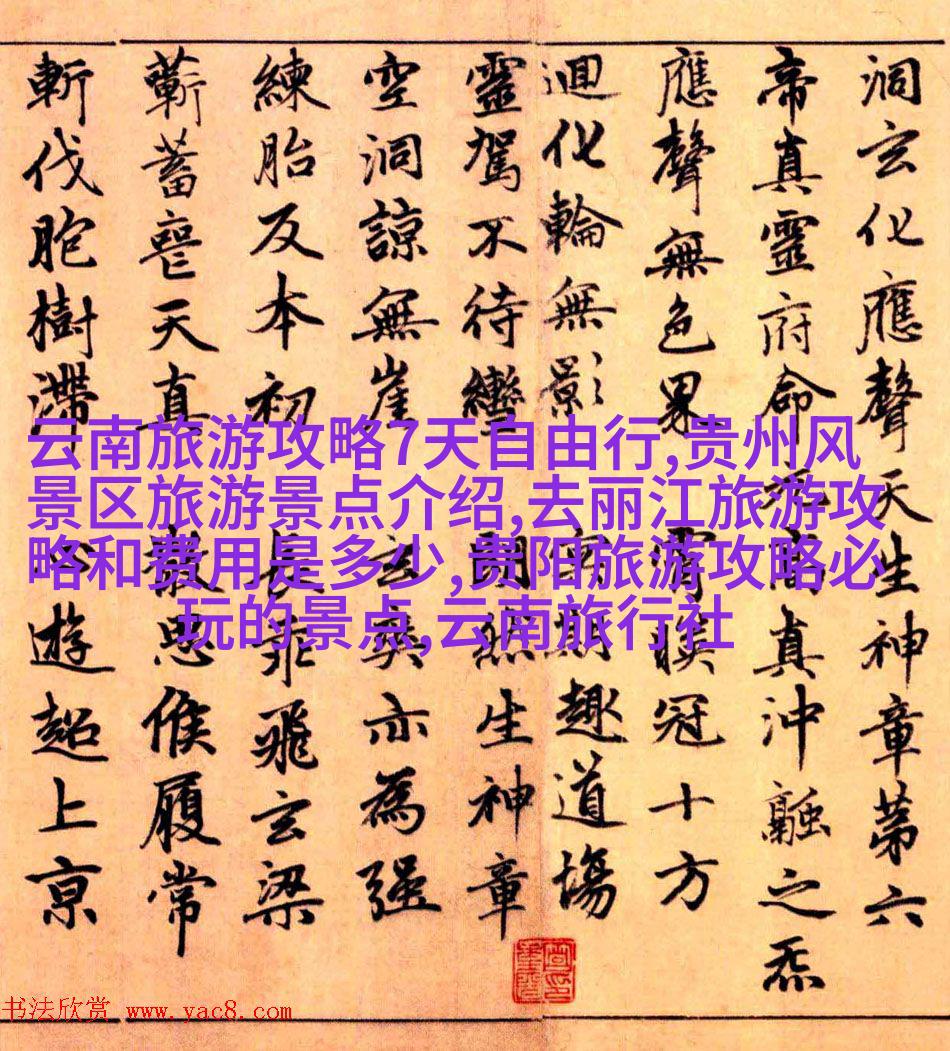 洞玄化應聲天生神章第六
帝真靈府命真沖融之炁
應聲無色界 霄映冠十方
迴化輪無影 期趣道場
靈駕不待轡 生神章
空洞諒無崖 玄爽亦為强
練胎反本初 長乖飛玄梁
蘄蓄喪天真 散思候履常
斬伐胞樹滯 遊超上京
云南旅游攻略7天自由行,贵州风
景区旅游景点介绍,去丽江旅游攻
略和费用是多少,贵阳旅游攻略必
玩的景点,云南旅行社
书法欣赏 www.yac8.com